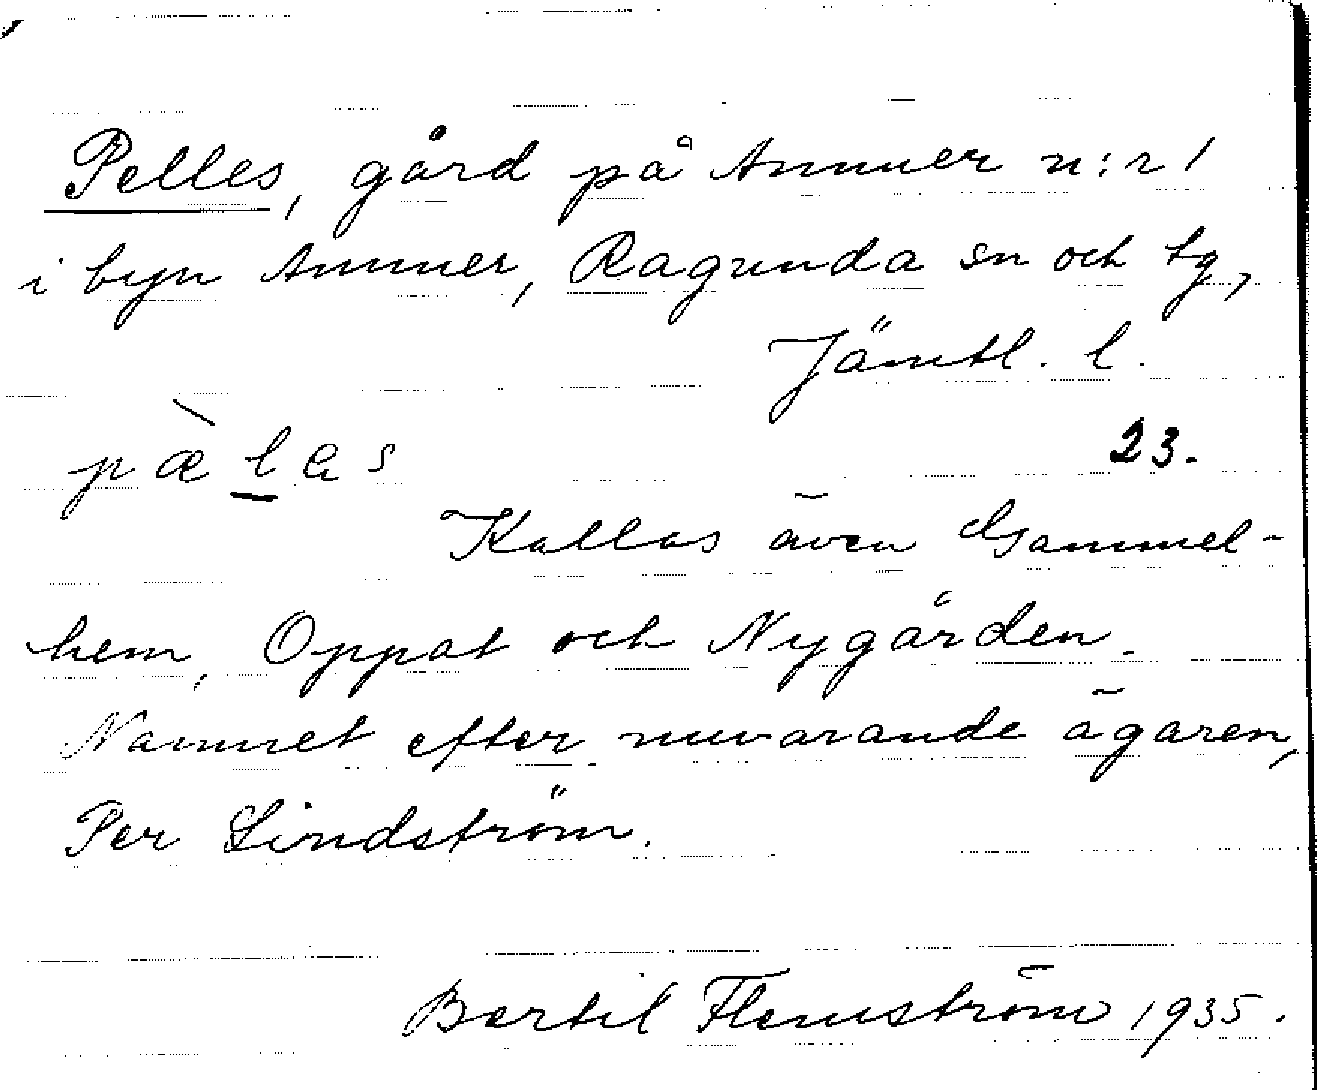 Pelles, gård på Ammer n:r 1
i byn Ammer, Ragunda sn och tg,
Jämtl. l.
pæ̀las
23.
Kallas även Gammel-
hem, Oppat och Nygården.
Namnet efter nuvarande ägaren,
Per Lindström.
Bertil Flemström 1935.